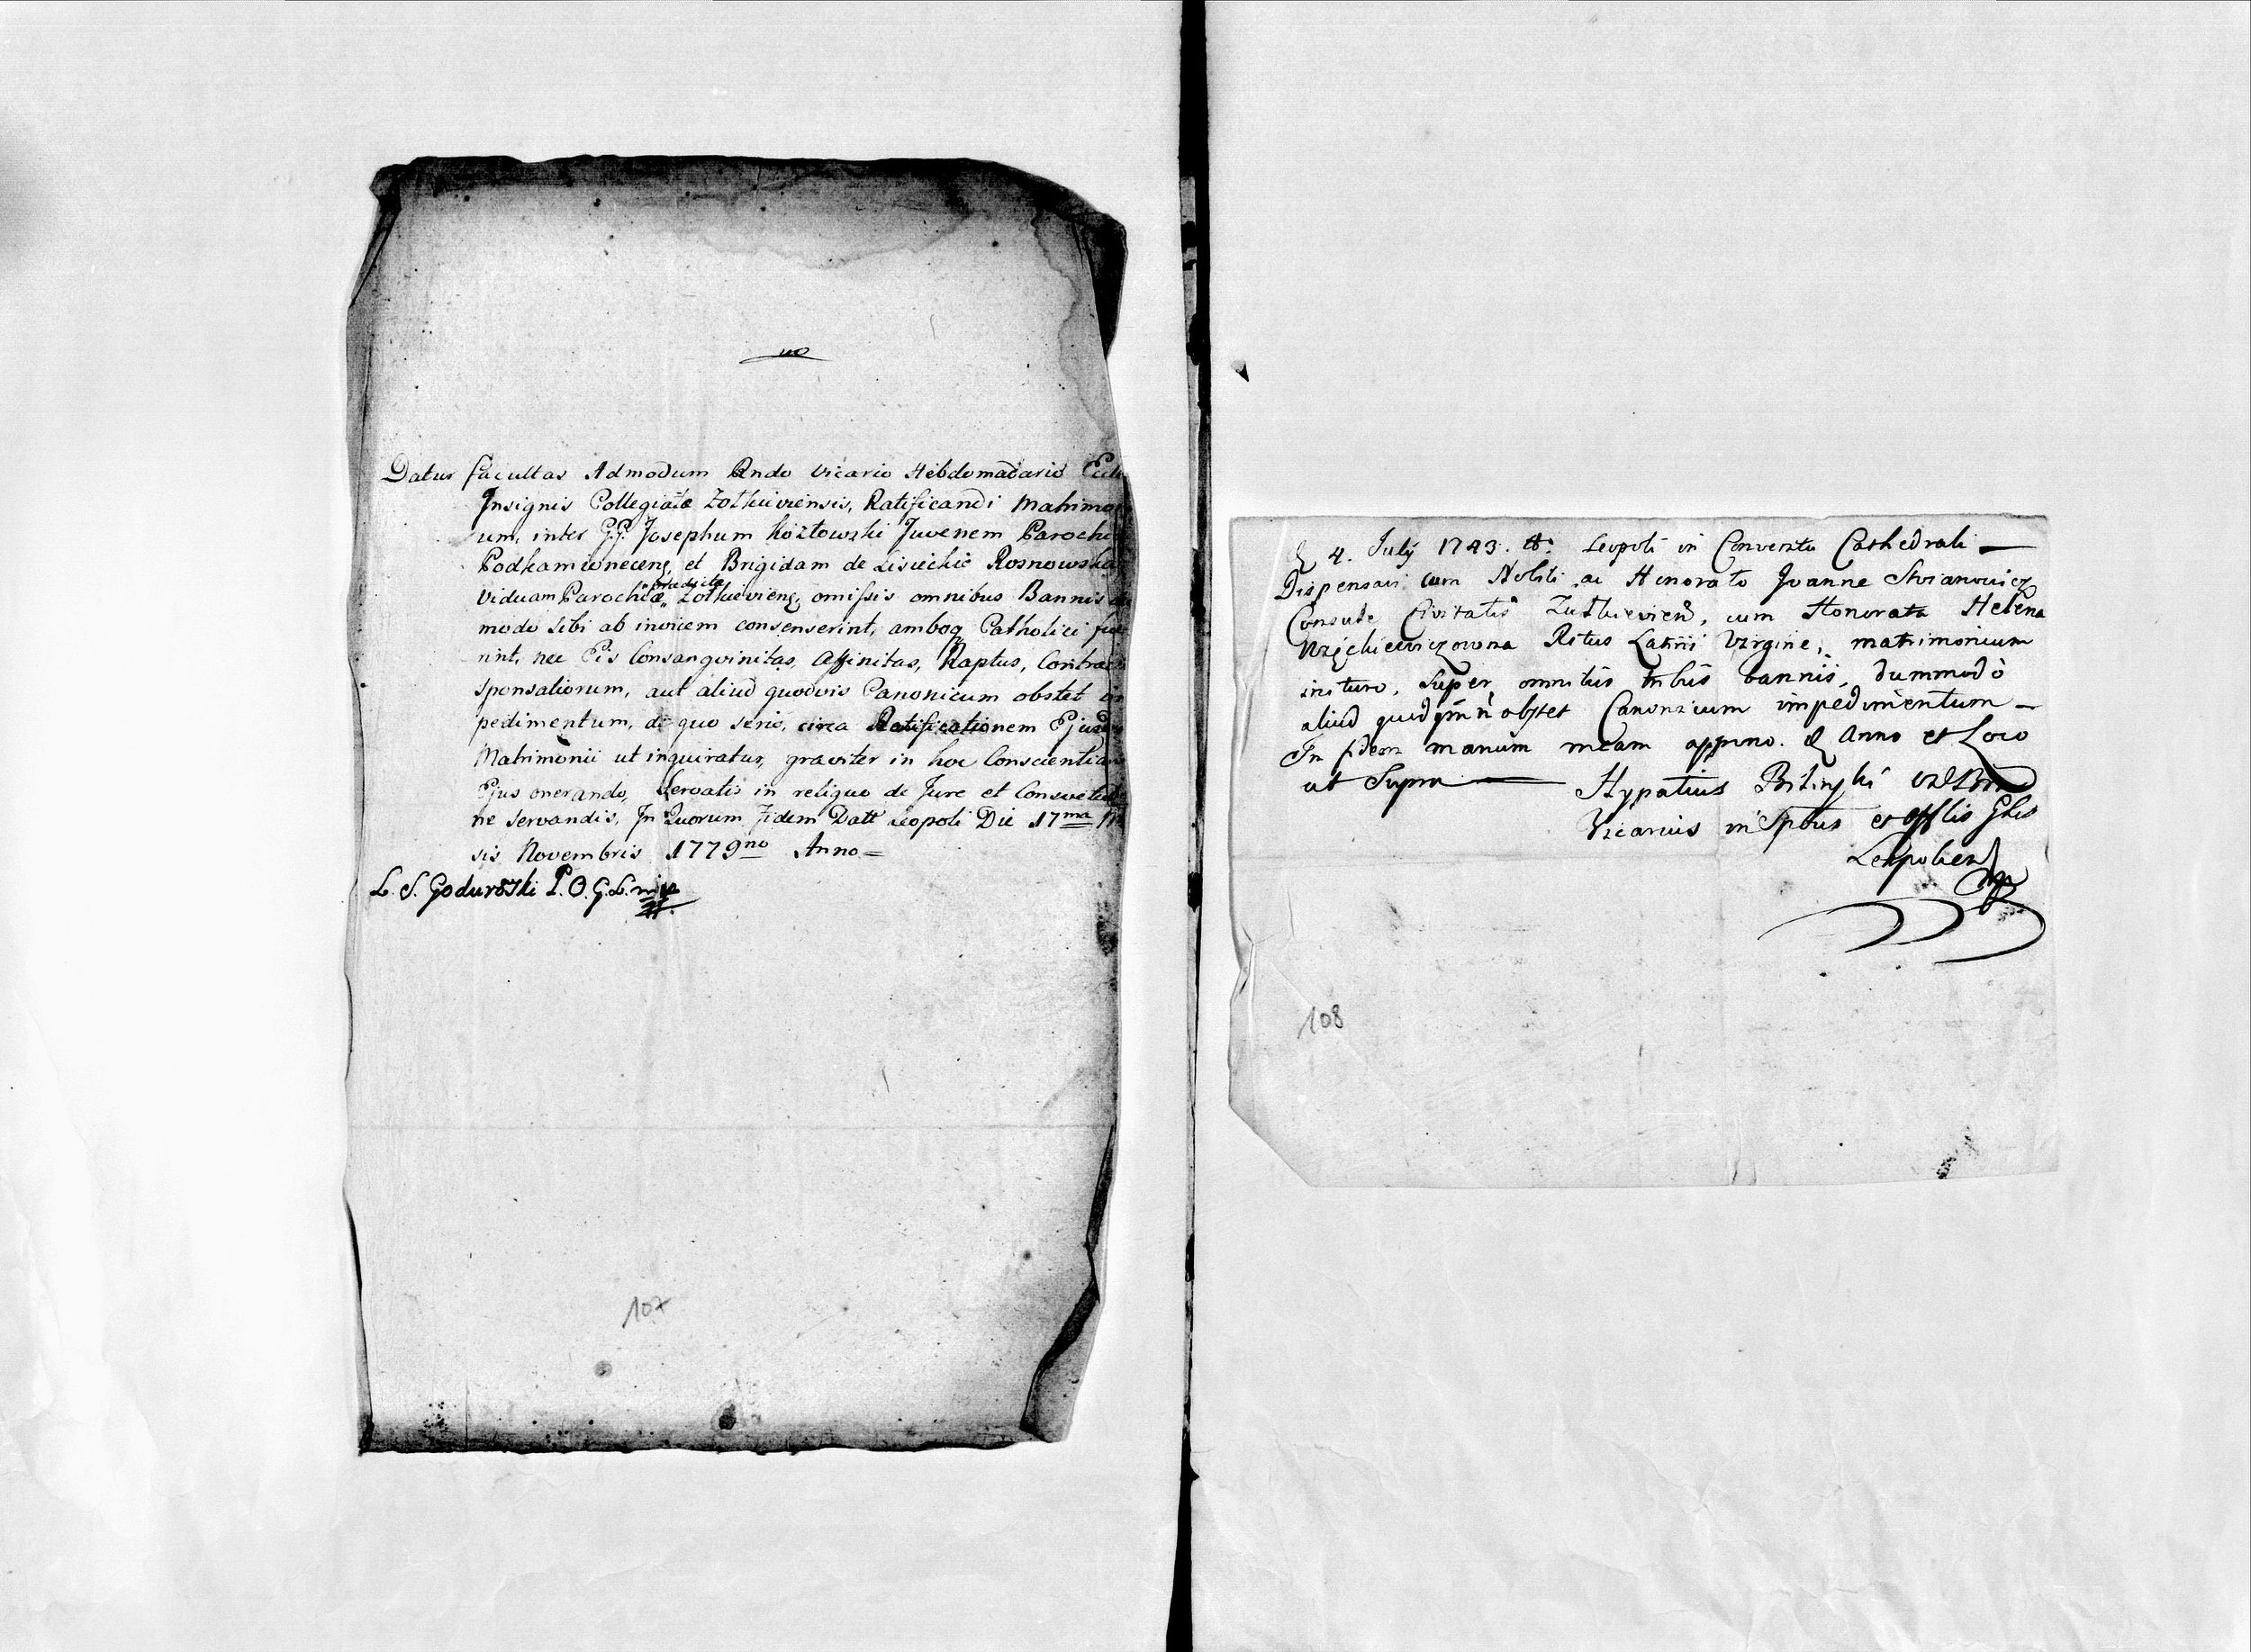 Datur facultas Admodum Rndo Vicario Hebdomadario Eccle
Insignis Collegiatæ Zolkiewiensis, Ratificandi Matrimo
um, inter G.G. Josephum Kozłowski Juvenem Parochi
Podkamieneceng, et Brigidam de Lisieckie Rosnowska
prædictæ
Viduam Parochiæ Zolkievieng, omissis omnibus Bannis
modo Sibi ab invicem consenserint, amboq Catholici fue
rint, nec Eis Consangvinitas, Affinitas, Raptus, Contrac
Sponsaliorum, aut aliud quodvis Canonicum obstet im
pedimentum, de quo serio, circa Ratificationem Ejusd
Matrimonii ut inquiratur, graviter in hoc Conscientiam
Ejus onerando, Servatis in reliquo de Jure et Consvetudi
ne Servandis, In Quorum Fidem Datt Leopoli Die 17ma M
sis Novembris 1779no Anno =
L. S. Godurowski P. O. G. L. mp
107
D 4. July 1783. Ao. Leopoli in Conventu Cathedrali —
Dispensavi cum Nobili ac Honorato Joanne Stoianowicz
Consule Civitatis Zulkievien, cum Honorata Helena
Ritus Latini Virgine, matrimonium
inituro, super omnibus tribus bannis, dummodò
aliud quid obstet Canonicum impedimentum —
In fidem manum meam appono. D Anno et Loco
ut Supra — Hypatius Bilinski
Vicarius in Sptbus et Offlis Gnlis
Leopolien
mp
108